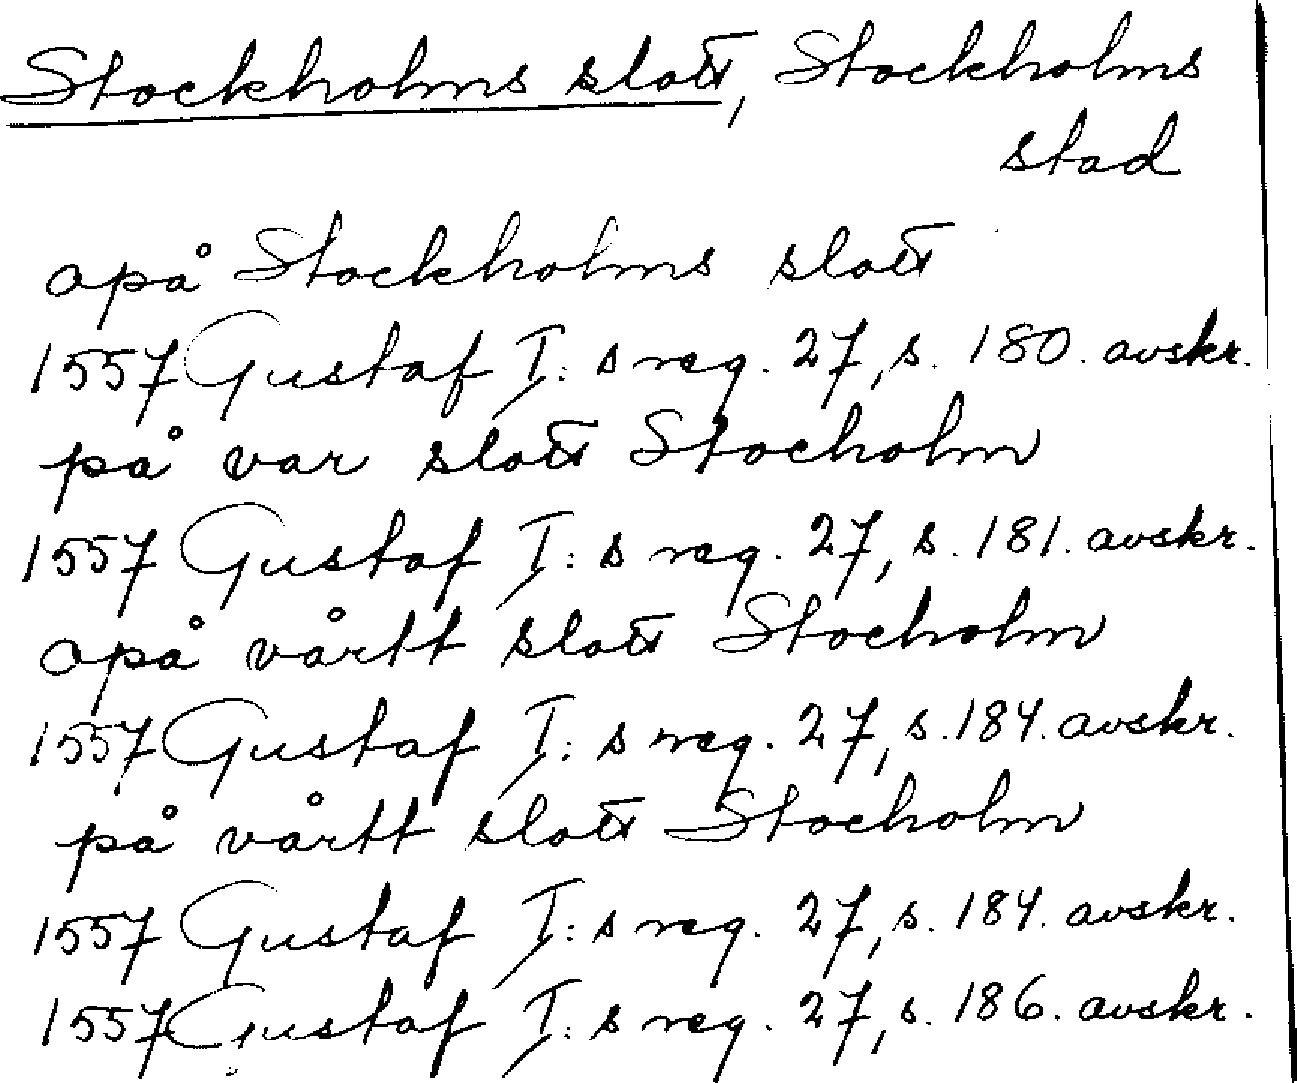 Stockholms slott, Stockholms
stad
opå Stockholms slott
1557 Gustaf I:s reg. 27, s. 180. avskr.
på var slott Stocholm
1557 Gustaf I:s reg. 27, s. 181. avskr.
opå vårtt slott Stocholm
1557 Gustaf I:s reg. 27, s. 184. avskr.
på vårtt slott Stocholm
1557 Gustaf I:s reg. 27, s. 184. avskr.
1557 Gustaf I:s reg. 27, s. 186. avskr.